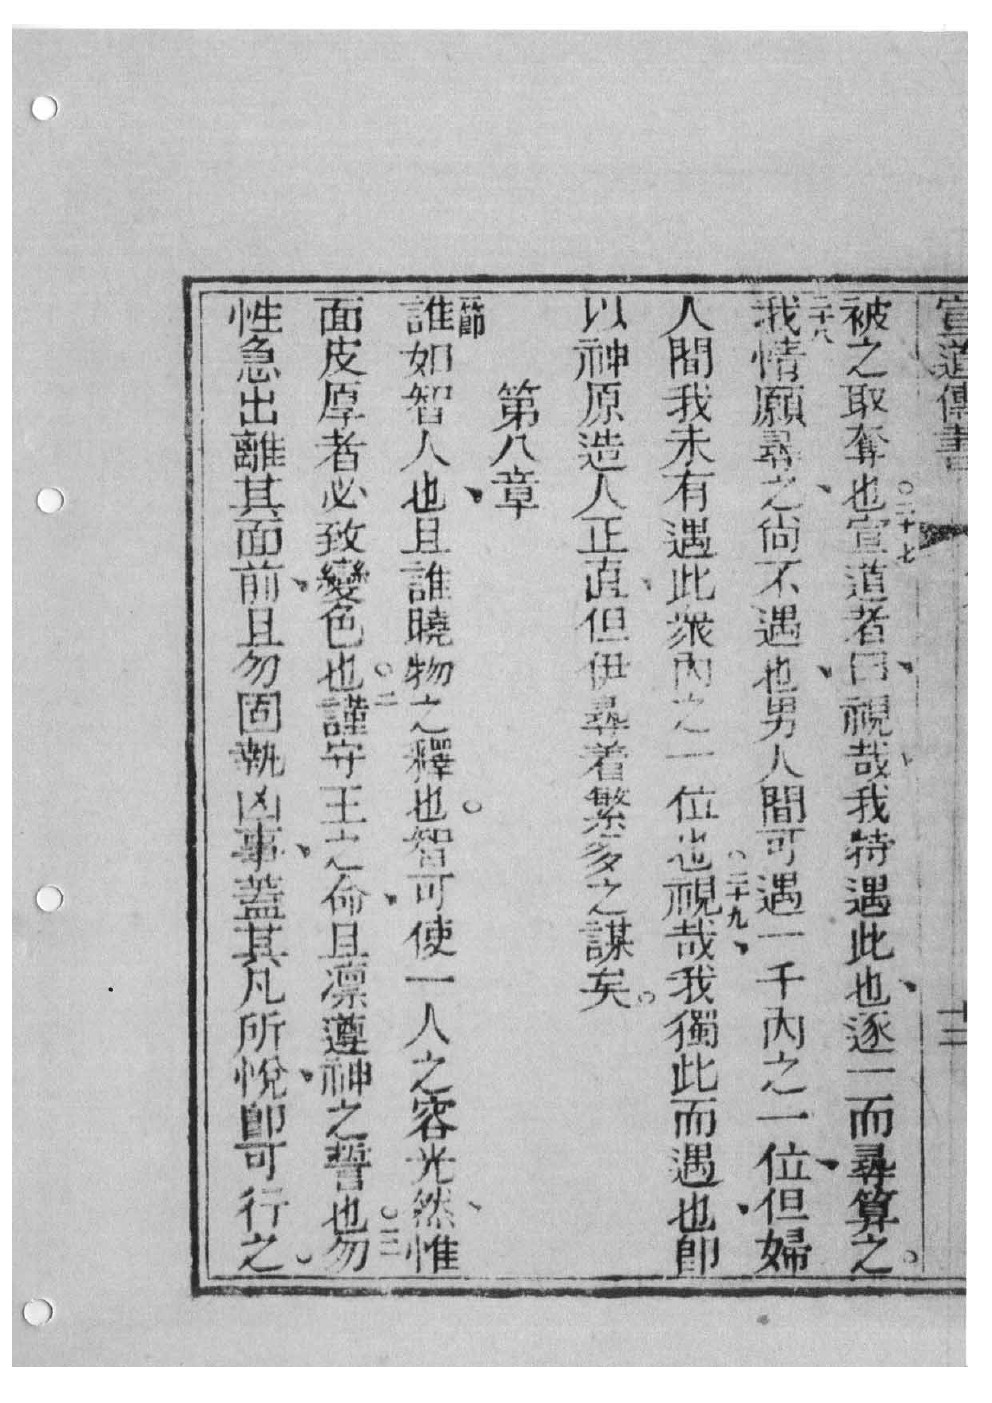 宣道傳書 十三
被之取奪也○二十七宣道者曰視哉我特遇此也逐一而尋算之
二十八我情願尋之尙不遇也男人間可遇一千內之一位但婦
人間我未有遇此眾內之一位也○二十九視哉我獨此而遇也卽
以神原造人正直但伊尋着繁多之謀矣
第八章
一節誰如智人也且誰曉物之釋也智可使一人之容光然惟
面皮厚者必致變色也○二謹守王之命且凛遵神之誓也○三勿
性急出離其面前且勿固執凶事蓋其凡所悅卽可行之